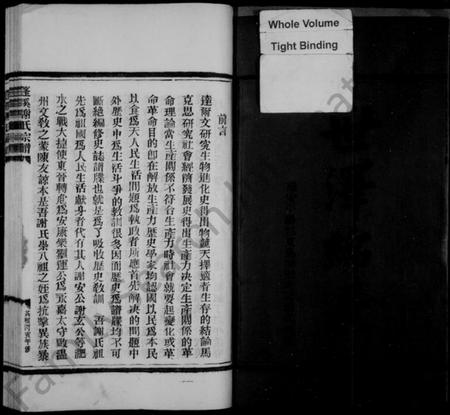 Whole Volume
Tight Binding
前言
達爾文研究生物進化史得出物競天擇適者生存的結論馬
克思研究社會經濟發展史得出生產力决定生產關係的革
命理論當生產關係不符合生產力時社會就要起變化或革
命革命目的即在解放生產力歷史學家均認國以民為本民
以食爲天人民生活問題爲執政者所應首先解决的問題中
外歷史中爲生活斗爭的教訓很多因而歷史爲譜牒均不可
斷絕編修史誌譜牒也就是爲了吸收歷史教訓 吾謝氏祖
先爲祖國爲人民生活献身者代有其人謝安公謝玄公等淝
水之戰大捷使東晉轉危爲安康樂靈運公爲永嘉太守啟溫
州文教之蒙陳友諒本是吾謝氏舉八祖之姪爲抗擊異族暴
謝氏宗譜